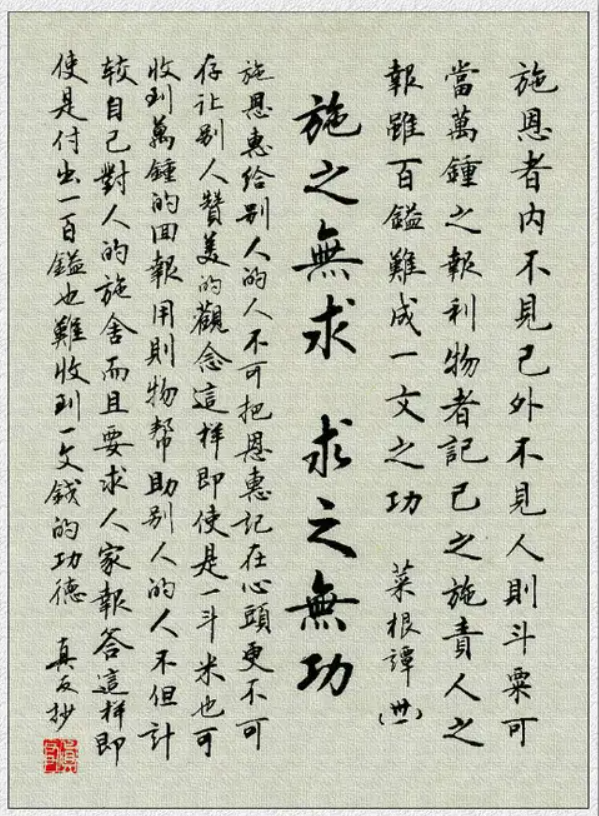 施恩者内不見己外不見人則斗粟可
當萬鍾之報利物者記己之施責人之
報雖百鎰難成一文之功　菜根譚(卅一)
施之無求　求之無功
施恩惠给别人的人不可把恩惠記在心頭更不可
存让别人贊美的觀念這样即使是一斗米也可
收到萬鍾的回報用財物幫助别人的人不但計
较自己對人的施舍而且要求人家報答這样即
使是付出一百鎰也難收到一文錢的功德　真友抄